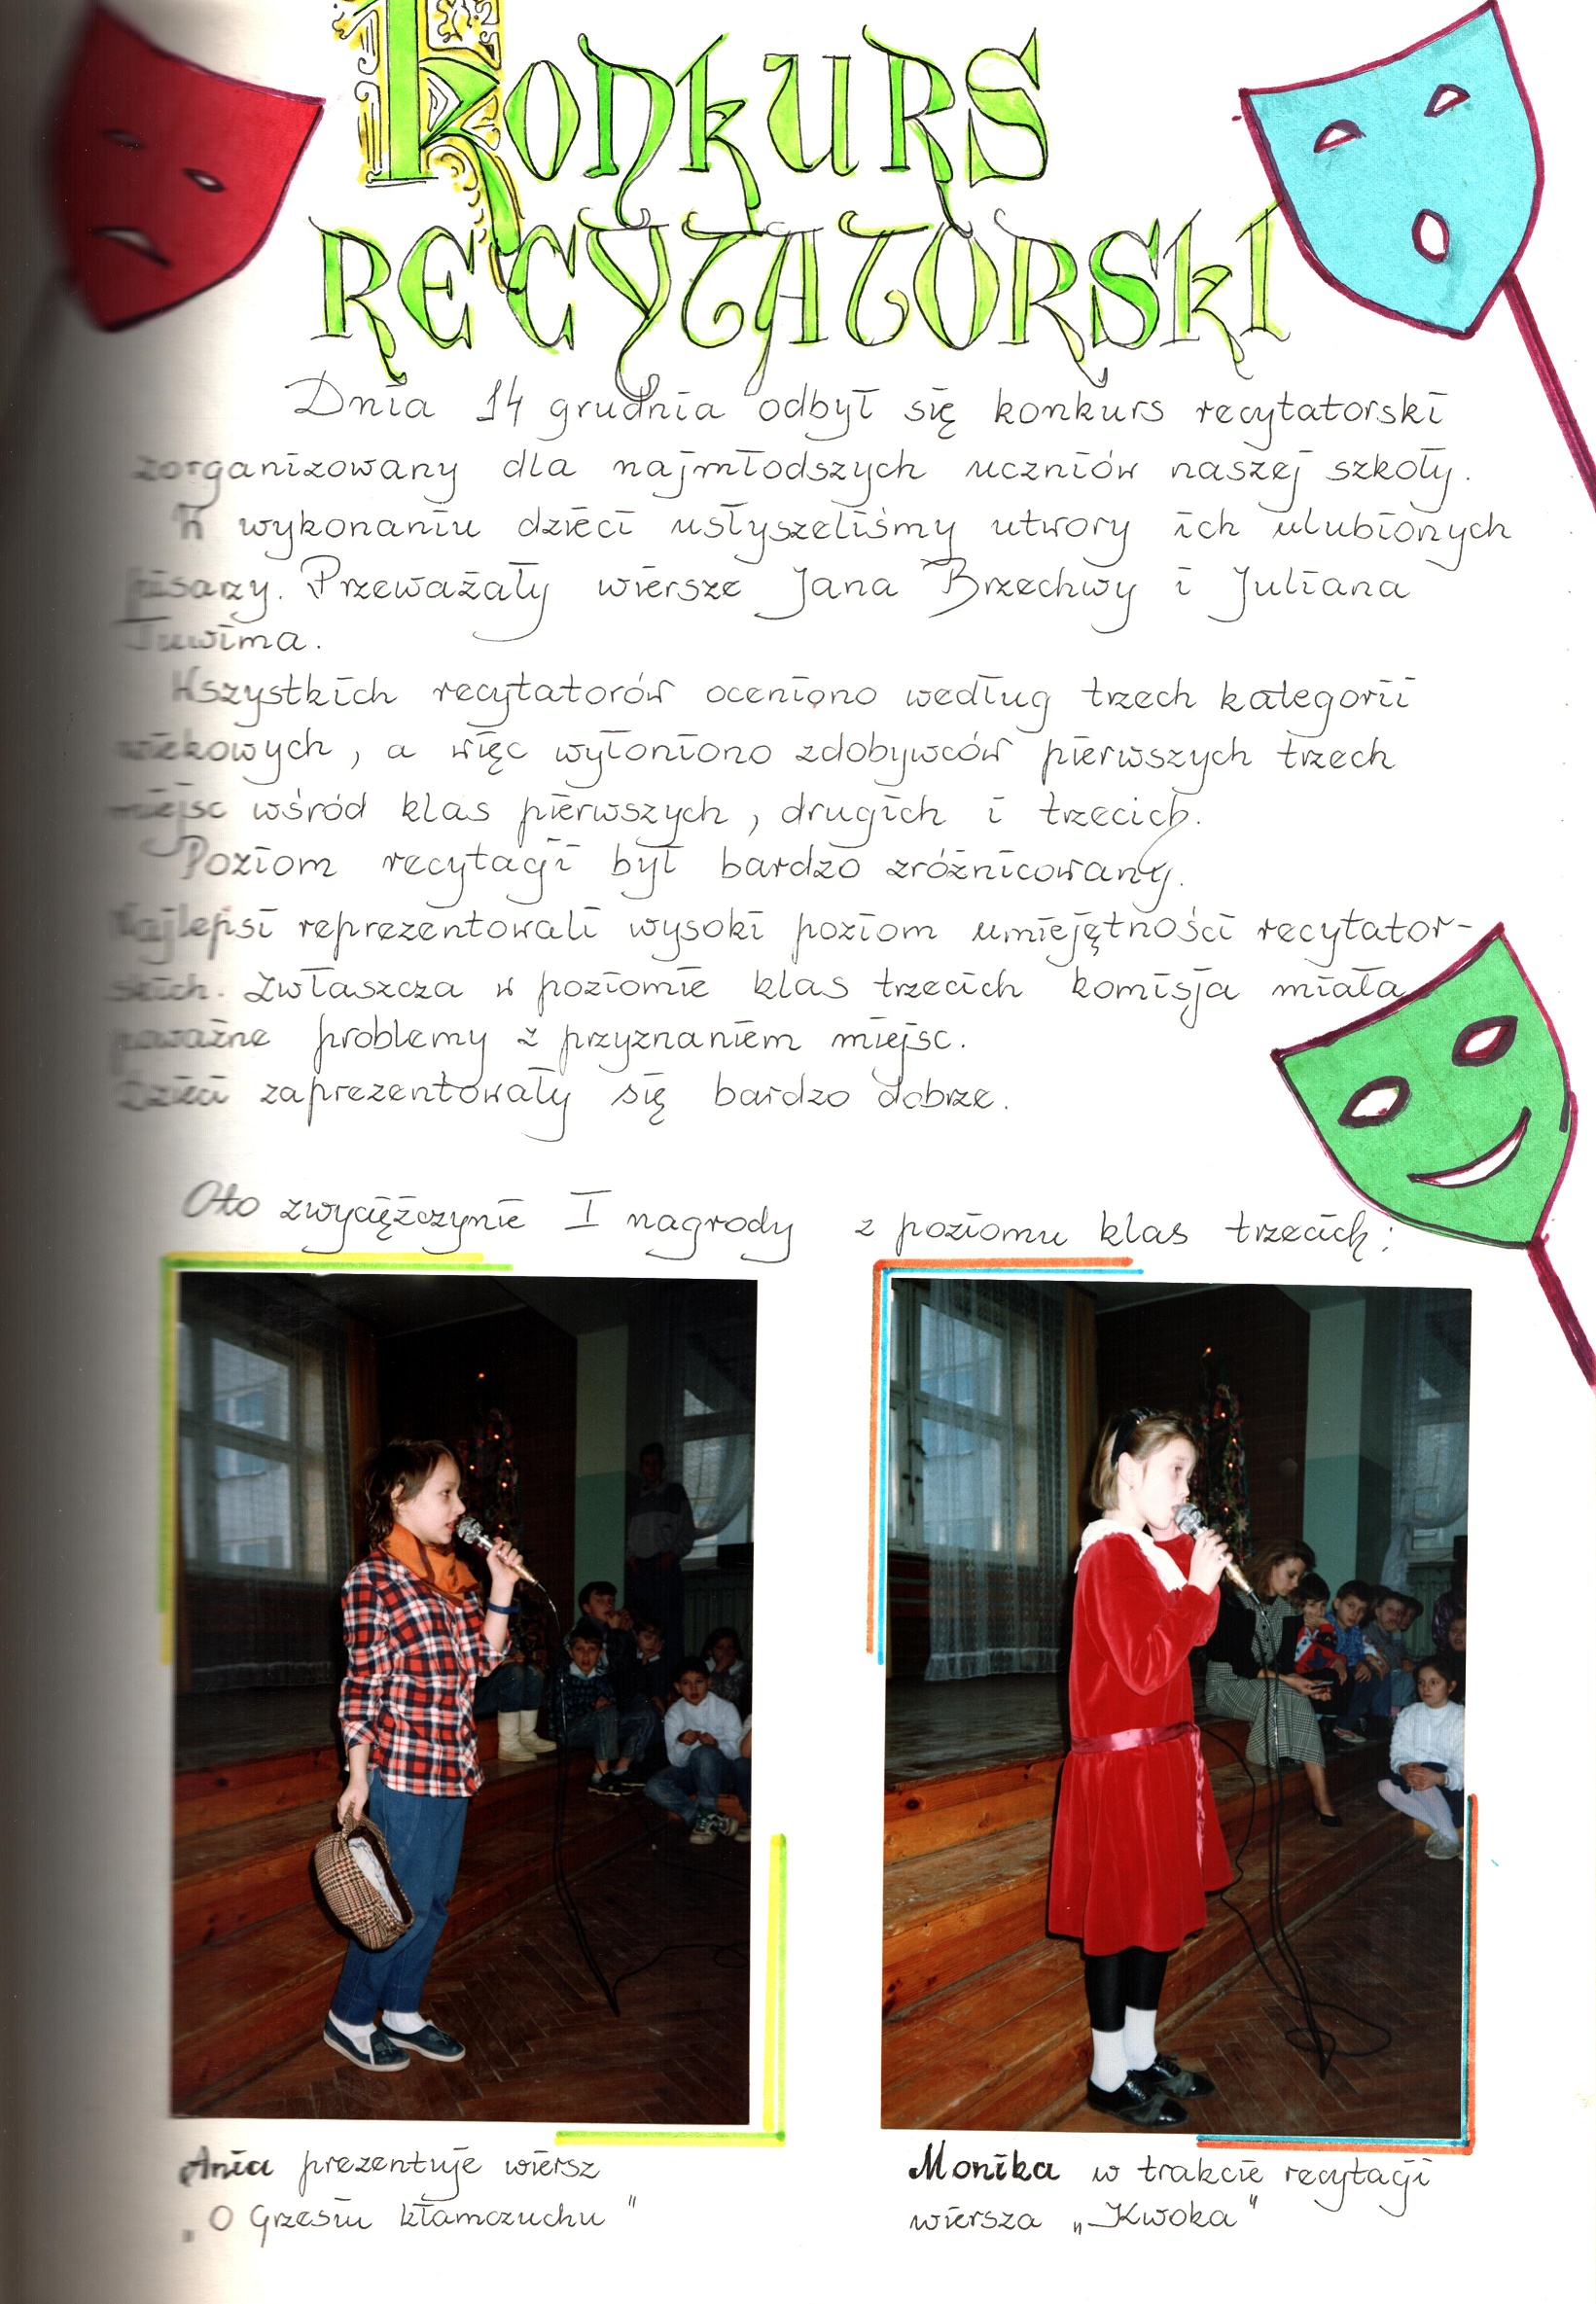 KONKURS
RECYTATORSKI
Dnia 14 grudnia odbył się konkurs recytatorski
zorganizowany dla najmłodszych uczniów naszej szkoły.
W wykonaniu dzieci usłyszeliśmy utwory ich ulubionych
pisarzy. Przeważały wiersze Jana Brzechwy i Juliana
Tuwima.
Wszystkich recytatorów oceniono według trzech kategorii
wiekowych, a więc wyłoniono zdobywców pierwszych trzech
miejsc wśród klas pierwszych, drugich i trzecich.
Poziom recytacji był bardzo zróżnicowany.
Najlepsi reprezentowali wysoki poziom umiejętności recytator-
skich. Zwłaszcza w poziomie klas trzecich komisja miała
poważne problemy z przyznaniem miejsc.
Dzieci zaprezentowały się bardzo dobrze.
Oto zwyciężczynie I nagrody z poziomu klas trzecich:
Ania prezentuje wiersz
„O Grzesiu kłamczuchu"
Monika w trakcie recytacji
wiersza „Kwoka"